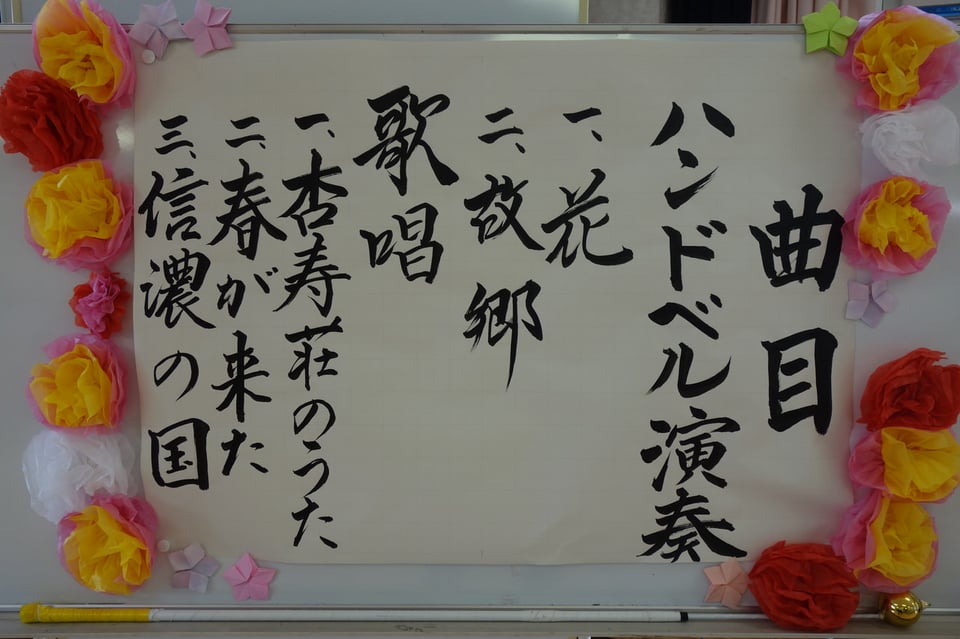 曲目
ハンドベル演奏
一、花
二、故郷
歌唱
一、杏寿荘のうた
二、春が来た
三、信濃の国